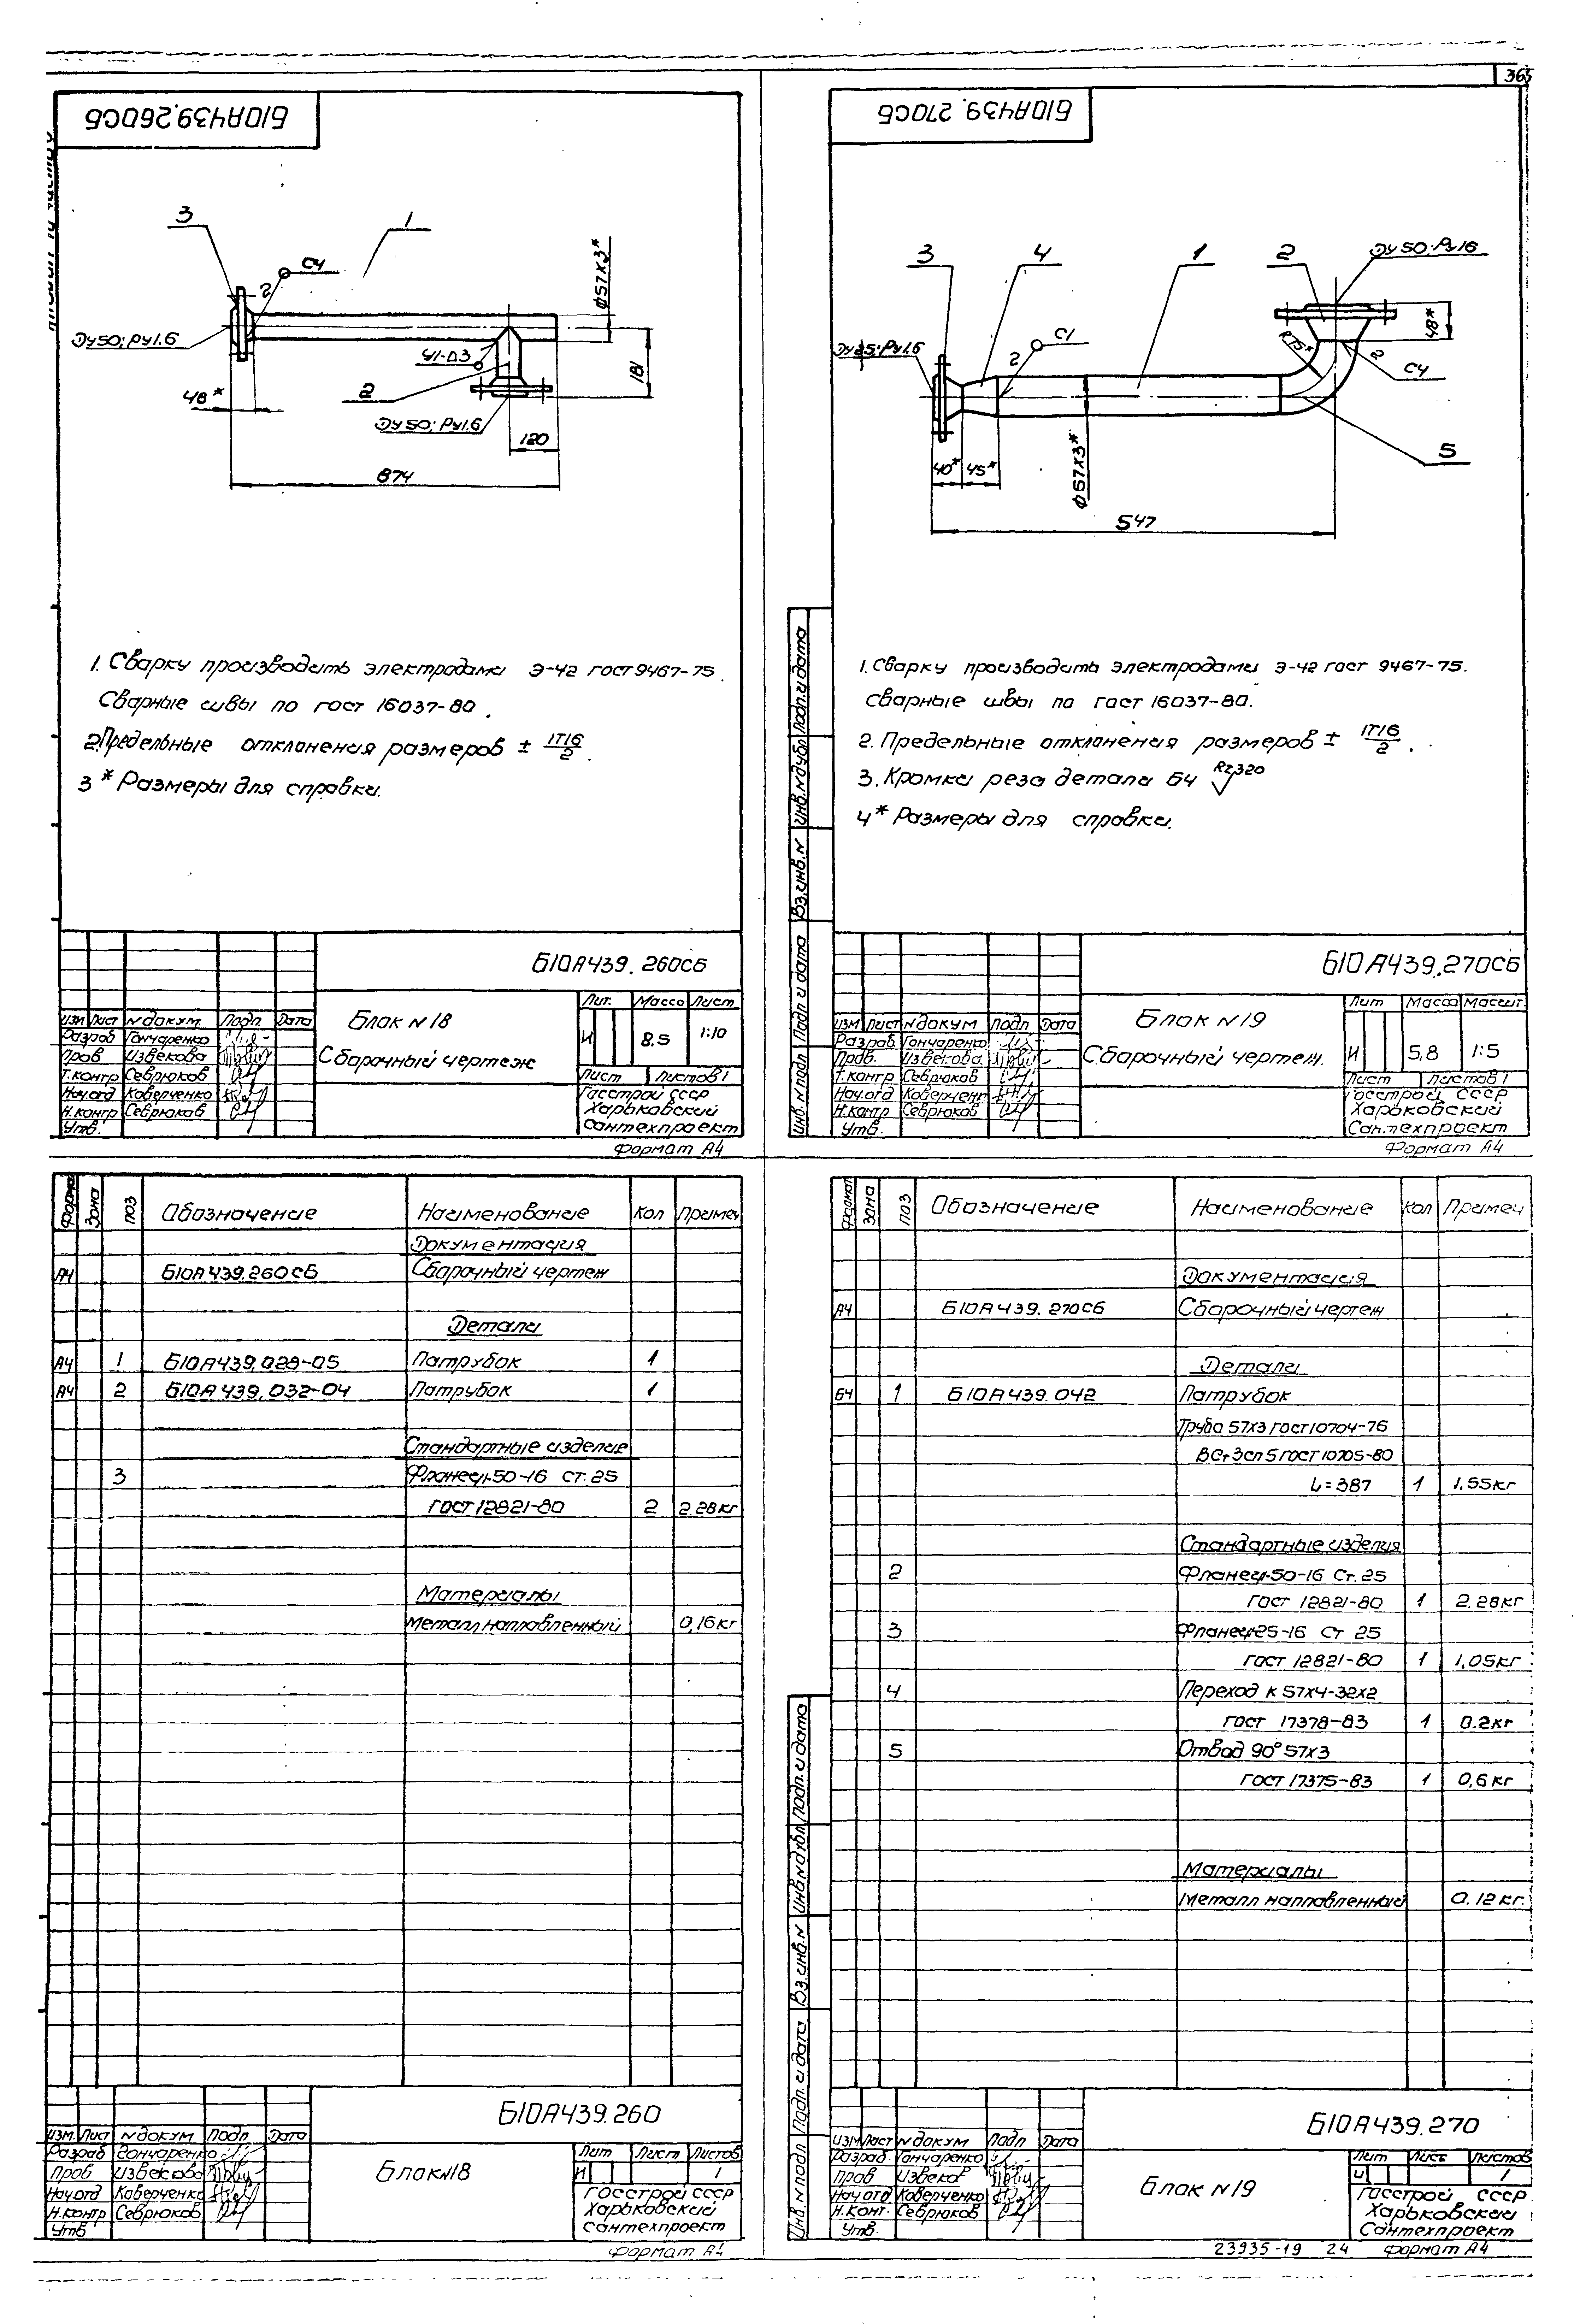 365
Б10А439.260СБ
3
1
С4
2
Ду50; Ру1.6
У1-Δ3
2
48*
Ду50; Ру1.6
ф57х3*
181
120
874
1. Сварку производить электродами Э-42 ГОСТ 9467-75.
Сварные швы по ГОСТ 16037-80.
2. Предельные отклонения размеров ± IT16/2.
3 * Размеры для справки.
Б10А439.260СБ
Блок N18
Сборочный чертеж
Лит. Масса Лист
И 8.5 1:10
Лист Листов 1
Изм Лист N докум. Подп. Дата
Разраб Гончаренко
Пров Извекова
Т.контр Севрюков
Нач.отд Коверченко
Н.контр Севрюков
Утв.
Госстрой СССР
Харьковский
Сантехпроект
Формат А4
Б10А439.270СБ
3
4
1
2
Ду50; Ру16
Ду25; Ру1.6
С1
2
R75*
2
С4
48*
5
40*
45*
ф57х3*
547
1. Сварку производить электродами Э-42 ГОСТ 9467-75.
Сварные швы по ГОСТ 16037-80.
2. Предельные отклонения размеров ± IT16/2.
3. Кромки реза детали БЧ Rz320
4* Размеры для справки.
Инв. N подл Подп и дата Вз.инв.N Инв.N дубл Подп.и дата
Б10А439.270СБ
Блок N19
Сборочный чертеж.
Лит Масса Масшт.
И 5,8 1:5
Лист Листов 1
Изм Лист N докум Подп Дата
Разраб Гончаренко
Пров. Извекова
Т.контр Севрюков
Нач.отд Коверченко
Н.контр Севрюков
Утв.
Госстрой СССР
Харьковский
Сантехпроект
Формат А4
Формат Зона Поз Обозначение Наименование Кол Примеч
Документация
А4 Б10А439.260СБ Сборочный чертеж
Детали
А4 1 Б10А439.028-05 Патрубок 1
А4 2 Б10А439.032-04 Патрубок 1
Стандартные изделие
3 Фланец1-50-16 Ст.25
ГОСТ 12821-80 2 2.28кг
Материалы
Металл наплавленный 0,16кг
Б10А439.260
Изм. Лист N докум Подп Дата
Разраб Гончаренко
Пров Извекова
Нач.отд Коверченко
Н.контр Севрюков
Утв
Блок N18
Лит Лист Листов
И 1
Госстрой СССР
Харьковский
Сантехпроект
Формат А4
Формат Зона Поз Обозначение Наименование Кол Примеч
Документация
А4 Б10А439.270СБ Сборочный чертеж
Детали
БЧ 1 Б10А439.042 Патрубок
Труба 57х3 ГОСТ 10704-76
ВСт3сп5 ГОСТ 10705-80
L=387 1 1,55кг
Стандартные изделия
2 Фланец1-50-16 Ст.25
ГОСТ 12821-80 1 2.28кг
3 Фланец1-25-16 Ст 25
ГОСТ 12821-80 1 1,05кг
4 Переход К 57х4-32х2
ГОСТ 17378-83 1 0.2кг
5 Отвод 90° 57х3
ГОСТ 17375-83 1 0,6кг
Материалы
Металл наплавленный 0.12кг.
Инв. N подл Подп. и дата Вз.инв.N Инв N дубл Подп. и дата
Б10А439.270
Изм Лист N докум Подп Дата
Разраб. Гончаренко
Пров Извеков
Нач отд Коверченко
Н.конт. Севрюков
Утв.
Блок N19
Лит Лист Листов
И 1
Госстрой СССР
Харьковский
Сантехпроект
23935-19 24 Формат А4